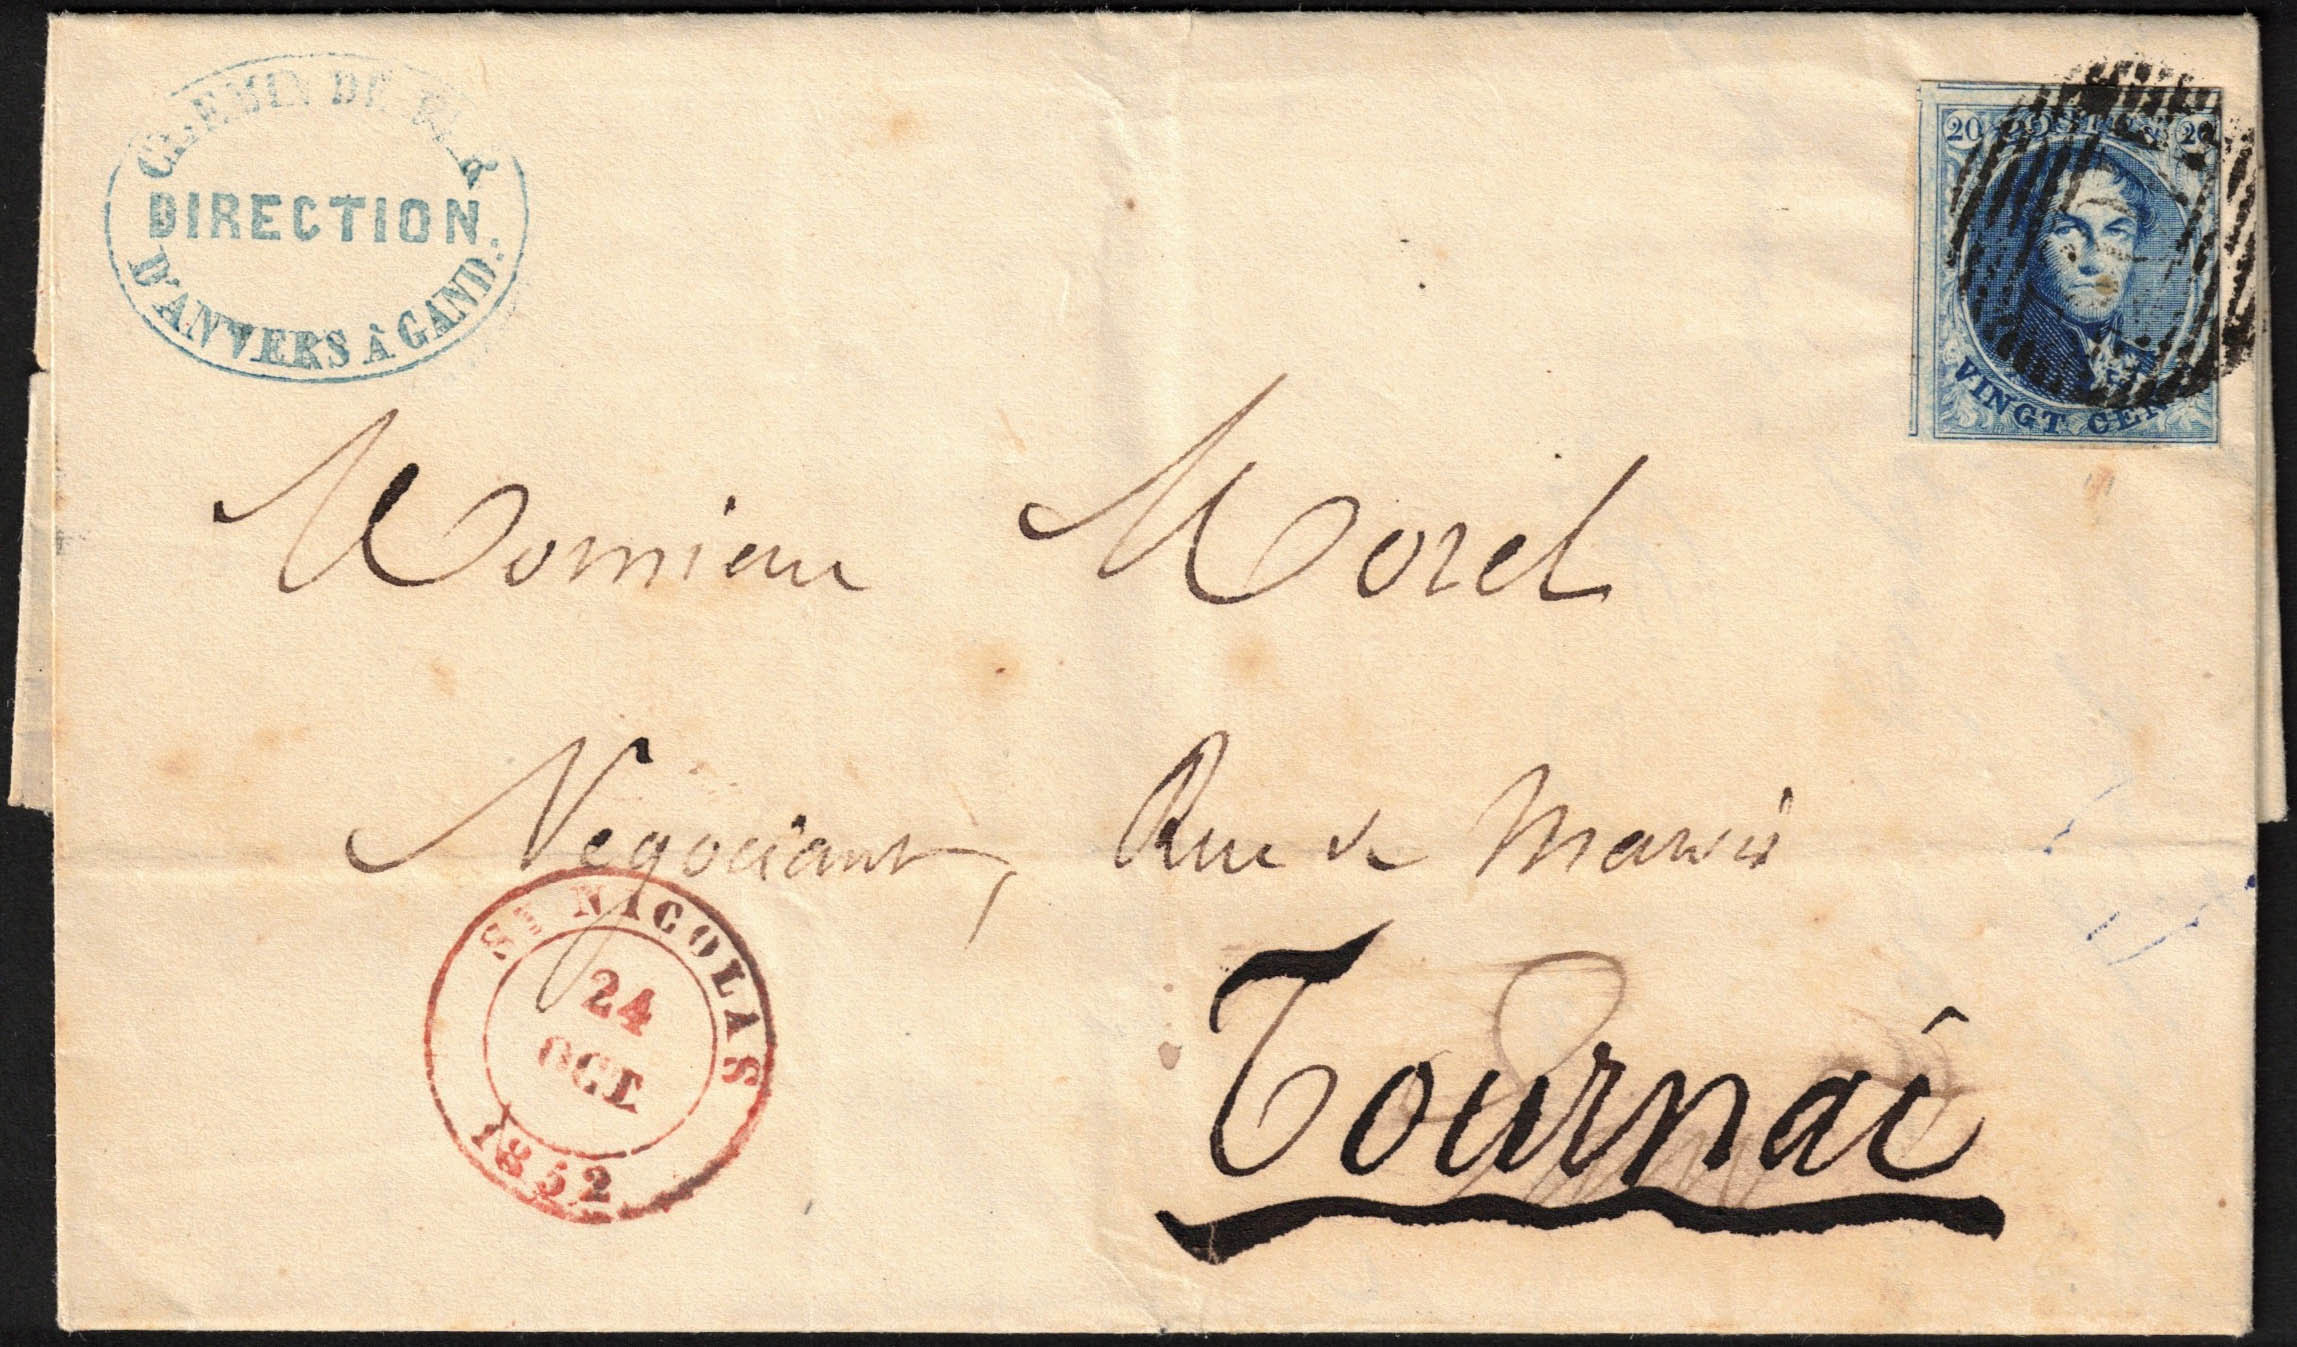 CHEMIN DE FER
DIRECTION
D'ANVERS À GAND.
20 POSTES 20
VINGT CEN
Monsieur Morel
Négociant, Rue de Marvis
Tournai
ST NICOLAS
24
OCT.
1852